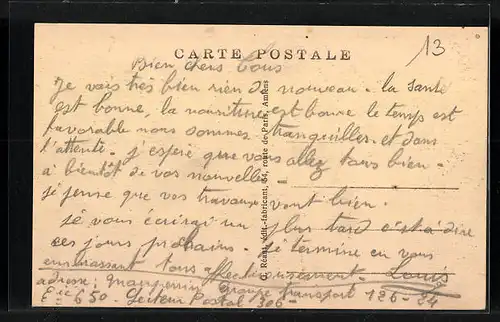 CARTE POSTALE
13
Bien chers tous
Je vais très bien rien de nouveau. la santé
est bonne, la nourriture est bonne le temps est
favorable nous sommes tranquilles et dans
l'attente. j'espère que vous allez tous bien.
à bientôt de vos nouvelles
je pense que vos travaux vont bien.
je vous écrirai un plus tard c'est à dire
ces jours prochains. je termine en vous
embrassant tous affectueusement. Louis
adresse: groupe transport 126-24
650. Secteur Postal 306
G. Réant, édit.-fabricant, 34, route de Paris, Amiens